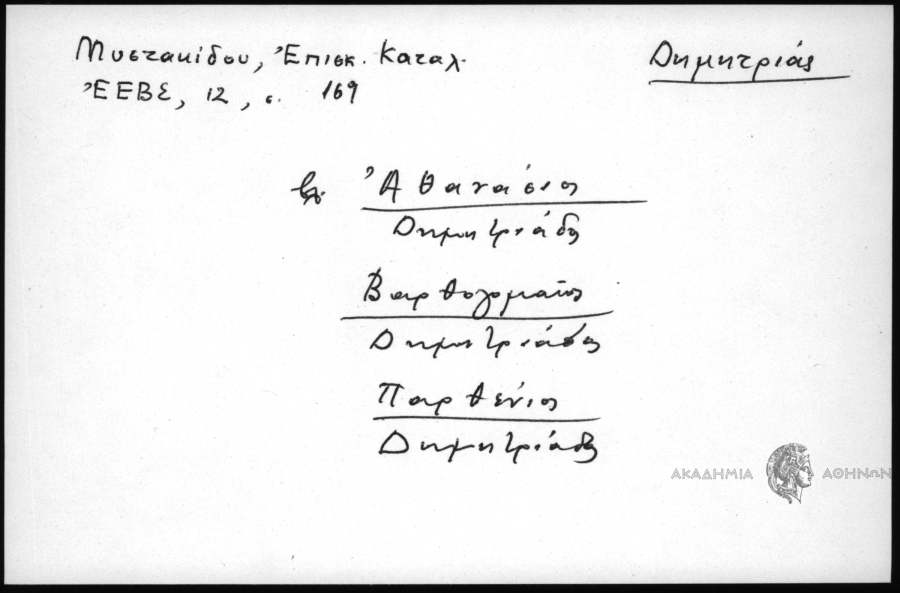 Μυστακίδου, Ἐπισκ. Καταλ. Δημητριάς
ἘΕΒΣ, 12, σ. 169
βλ. Ἀθανάσιος
Δημητριάδος
Βαρθολομαῖος
Δημητριάδος
Παρθένιος
Δημητριάδος
ΑΚΑΔΗΜΙΑ ΑΘΗΝΩΝ